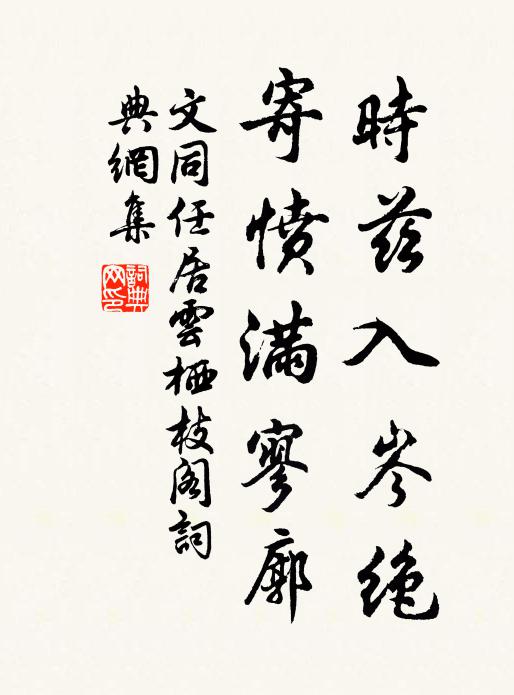 時茲入岑絶
寄憤滿寥廓
文同任居雲栖枝閣詞
典網集
詞典網印